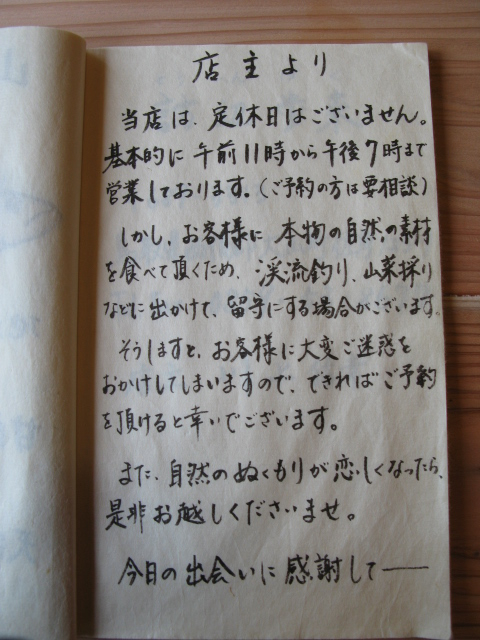 店主より
当店は、定休日はございません。
基本的に午前11時から午後7時まで
営業しております。(ご予約の方は要相談)
しかし、お客様に本物の自然の素材
を食べて頂くため、渓流釣り、山菜採り
などに出かけて、留守にする場合がございます。
そうしますと、お客様に大変ご迷惑を
おかけしてしまいますので、できればご予約
を頂けると幸いでございます。
また、自然のぬくもりが恋しくなったら、
是非お越しくださいませ。
今日の出会いに感謝して――